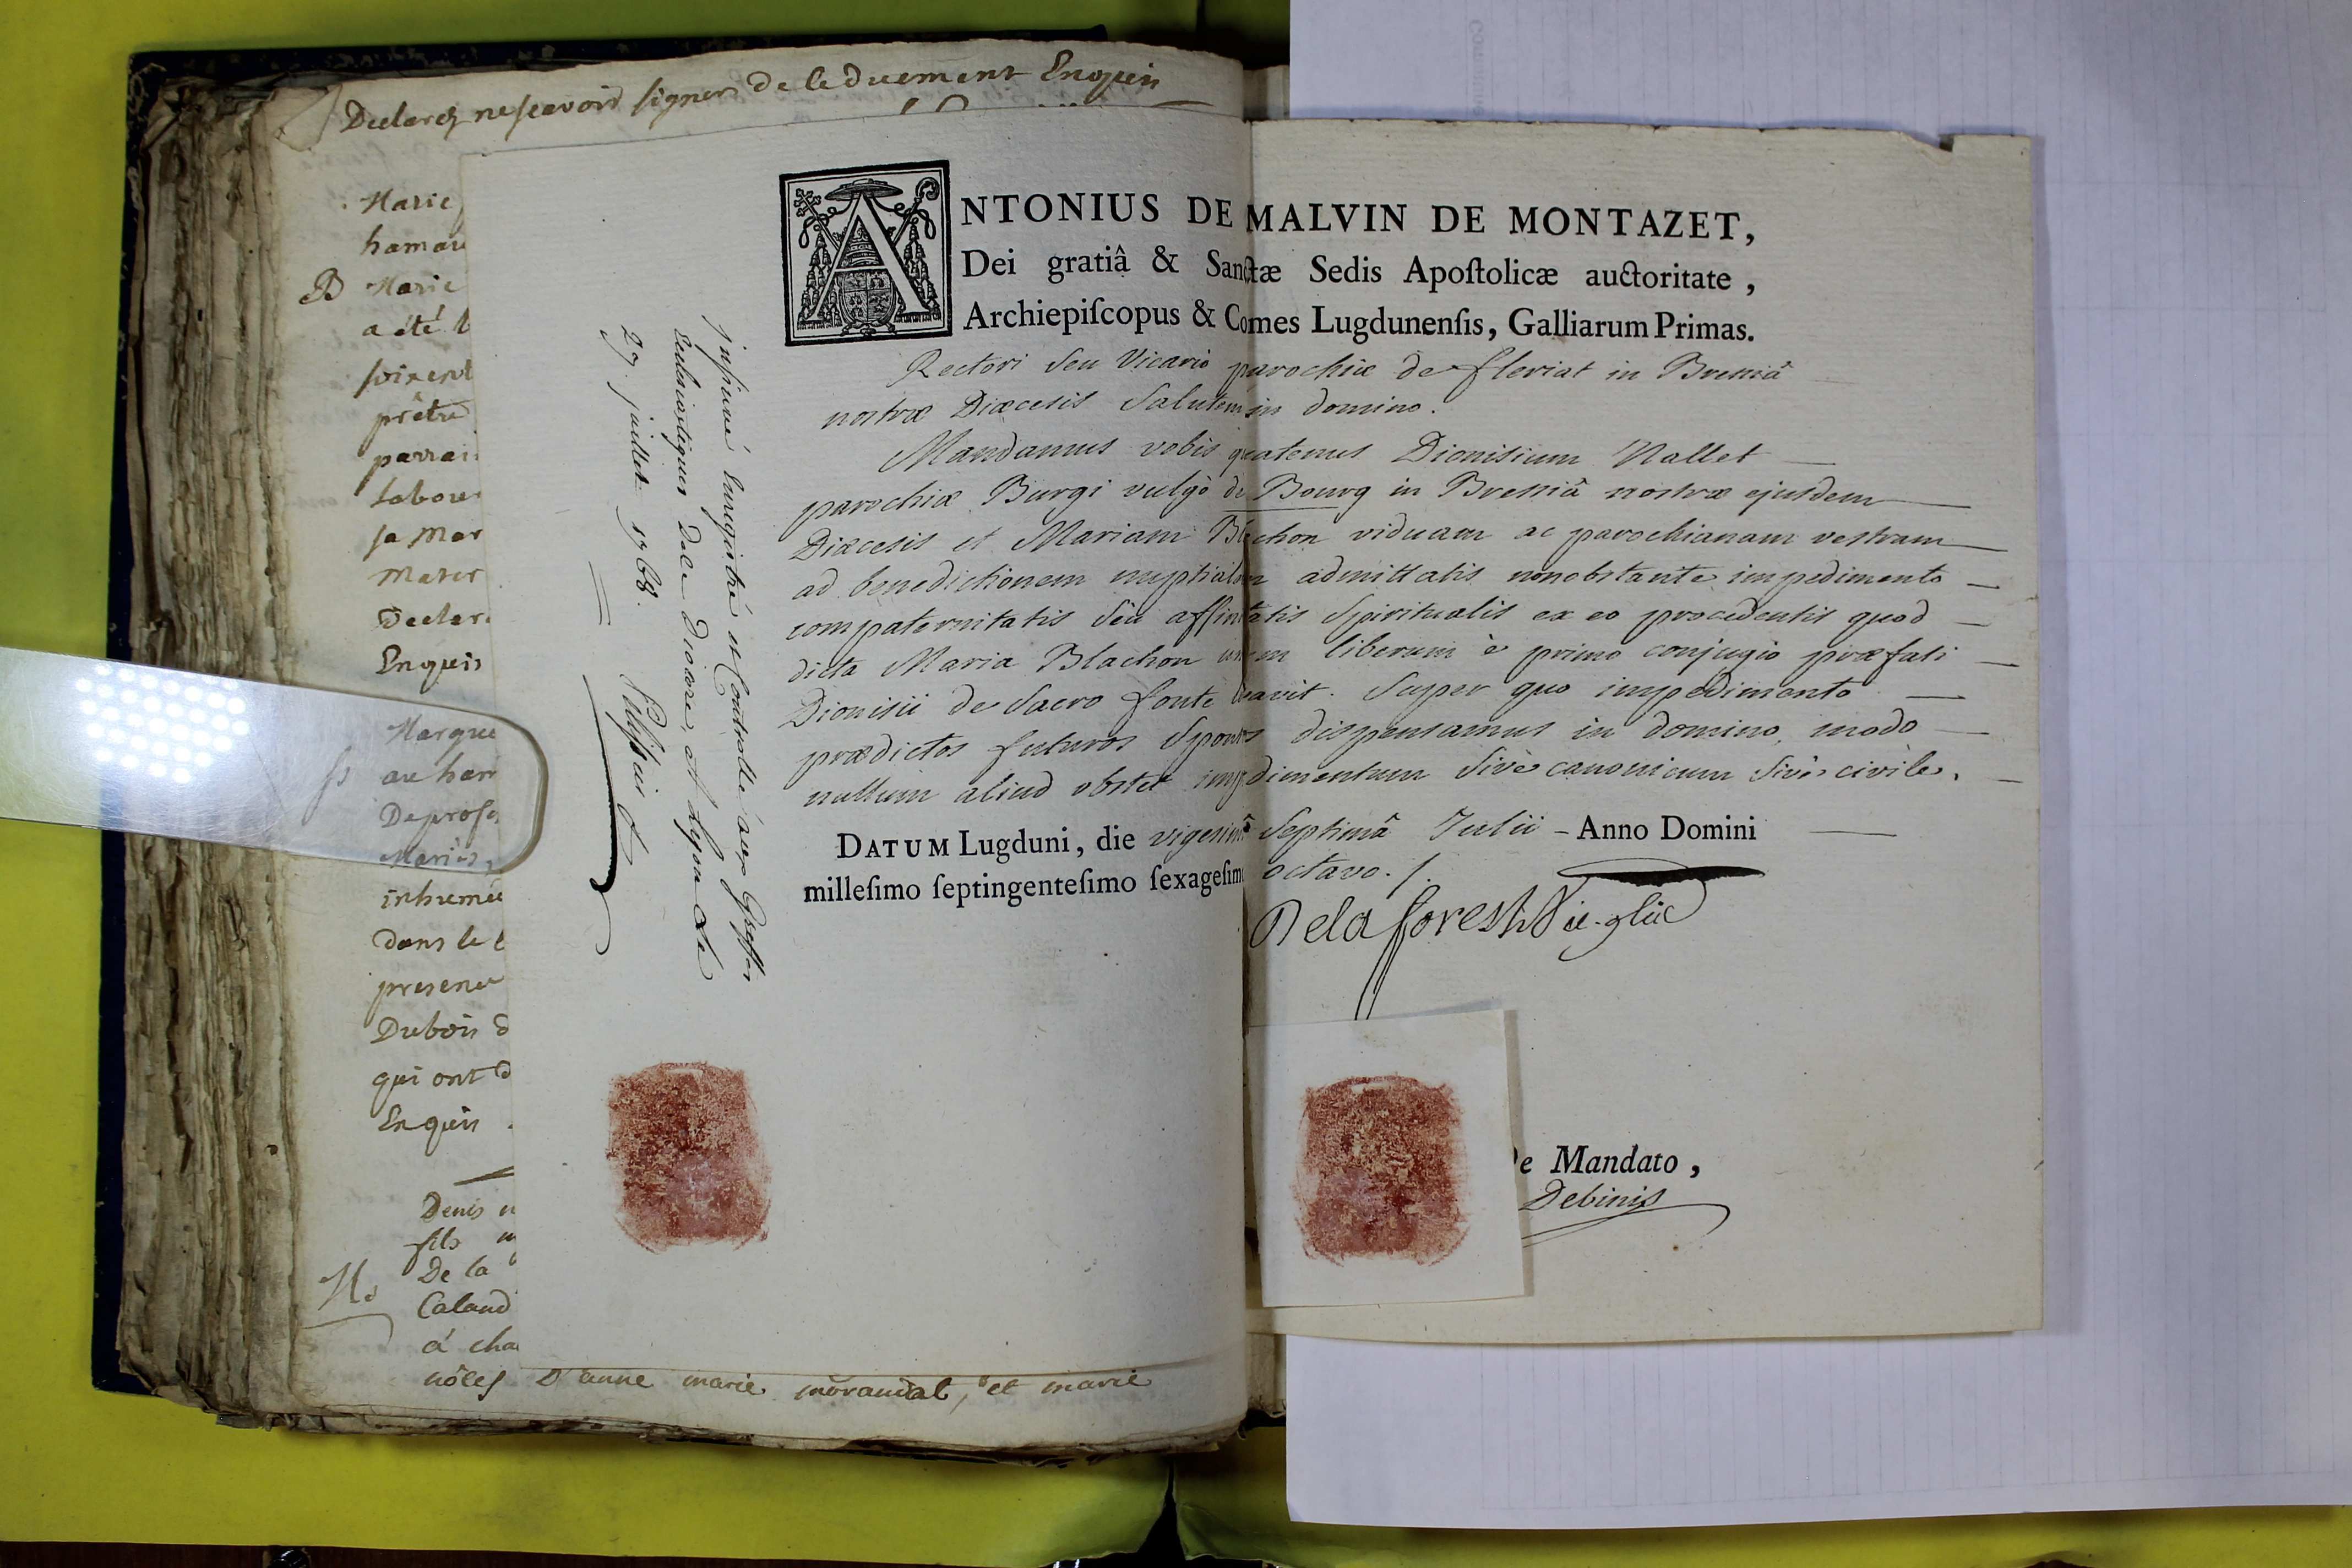 Declarés ne scavoir signer de ce duement Enquis
Marie
hamau
B Marie
a été b
soixent
prêtre
parrai
Labour
sa Mar
Mater
Declare
Enquis
Margue
S au ham
De profe
Maries,
inhumée
dans le c
presence
Dubois d
qui ont d
Enquis
Denis n
fils m
M. De la
Caland
á cha
nôces D'anne marie morandat, et marie
ANTONIUS DE MALVIN DE MONTAZET,
Dei gratiâ & Sanctæ Sedis Apoſtolicæ auctoritate,
Archiepiſcopus & Comes Lugdunenſis, Galliarum Primas.
Rectori seu Vicario parochiæ de fleriat in Bressiâ
nostræ Diœcesis Salutem in domino.
Mandamus vobis quatenus Dionisium Nallet
parochiæ Burgi vulgò de Bourg in Bressiâ nostræ ejusdem
Diœcesis et Mariam Blachon viduam ac parochianam vestram
ad benedictionem nuptialem admittatis nonobstante impedimento
compaternitatis seu affinitatis Spiritualis ex eo procedentis quod
dicta Maria Blachon unum liberum è primo conjugio præfati
Dionisii de Sacro fonte levavit. Super quo impedimento
prædictos futuros Sponsos dispensamus in domino, modo
nullum aliud obstet impedimentum Sivè canonicum Sivè civile.
DATUM Lugduni, die vigesimâ Septimâ Julii - Anno Domini
milleſimo ſeptingenteſimo ſexageſimo octavo./.
Delaforest Vic. gl̃is
De Mandato,
Debinis
insinué Enregistré et Controllé aux Greffes
Ecclesiastiques De le Diocese, a Lyon Le
27. juillet 1768.